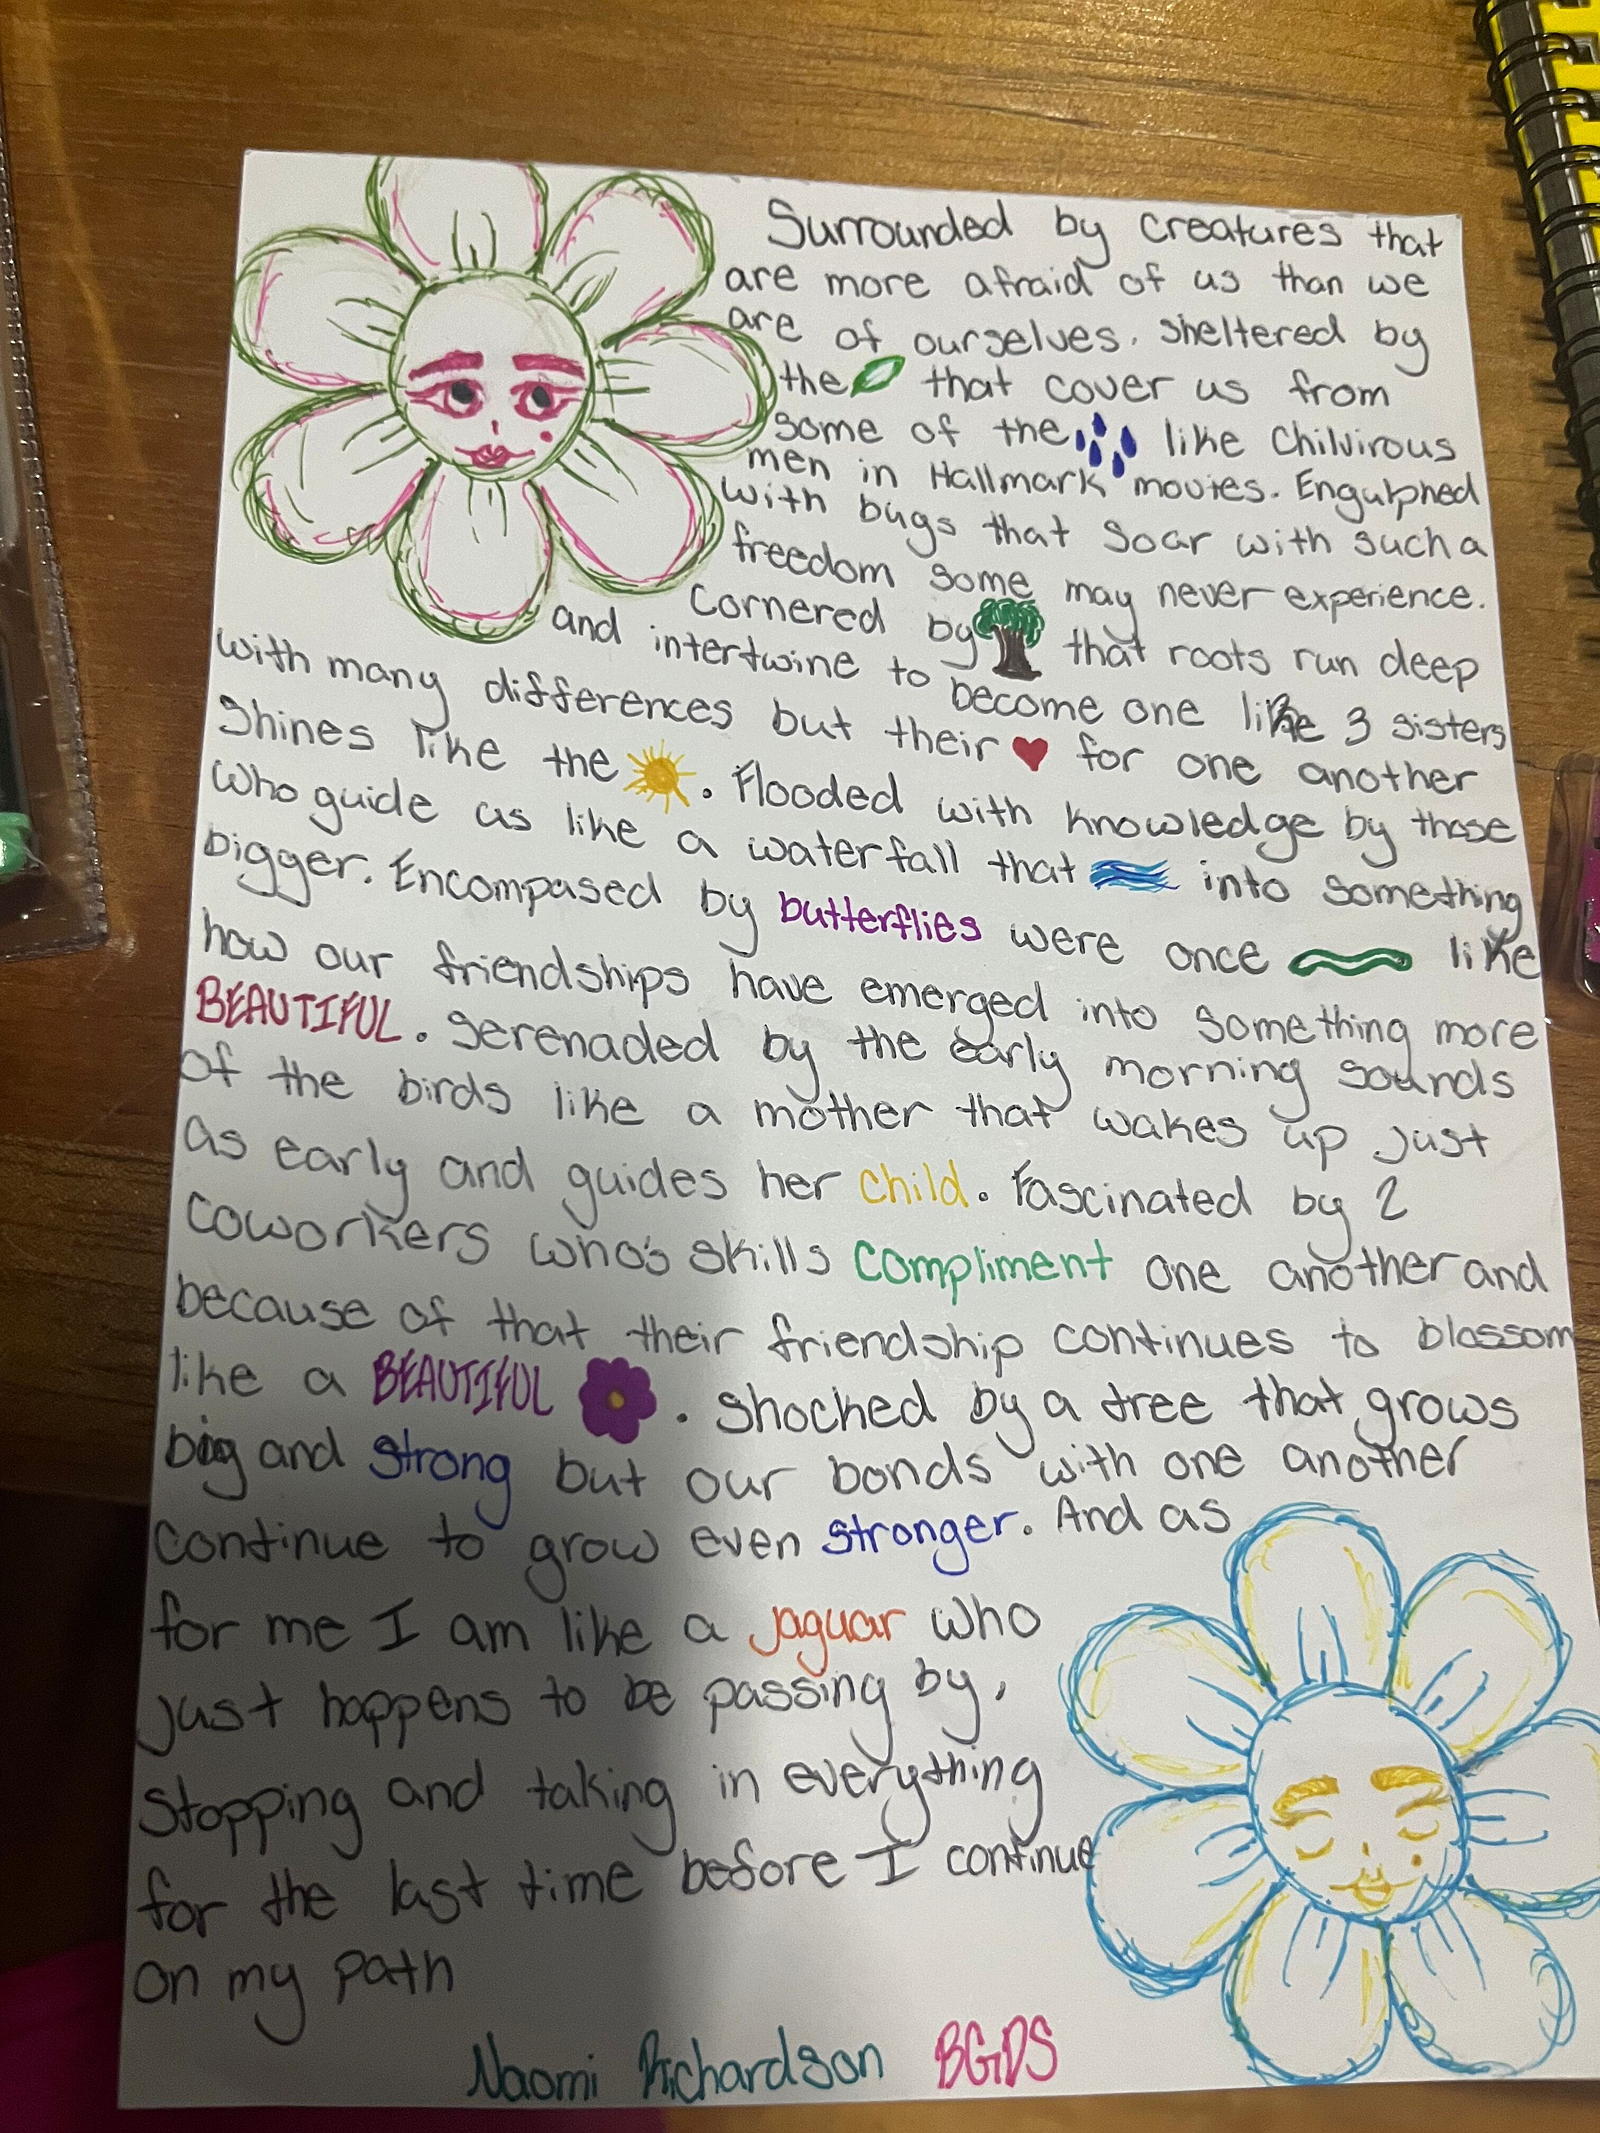 Surrounded by creatures that
are more afraid of us than we
are of ourselves. Sheltered by
the that cover us from
some of the like Chilvirous
men in Hallmark movies. Engulphed
with bugs that soar with such a
freedom some may never experience.
Cornered by that roots run deep
and intertwine to become one like 3 sisters
with many differences but their for one another
shines like the . Flooded with knowledge by those
who guide us like a waterfall that into something
bigger. Encompased by butterflies were once like
how our friendships have emerged into something more
BEAUTIFUL. Serenaded by the early morning sounds
of the birds like a mother that wakes up just
as early and guides her child. Fascinated by 2
coworkers who's skills compliment one another and
because of that their friendship continues to blossom
like a BEAUTIFUL . Shocked by a tree that grows
big and strong but our bonds with one another
continue to grow even stronger. And as
for me I am like a jaguar who
just happens to be passing by,
stopping and taking in everything
for the last time before I continue
on my path
Naomi Richardson BGDS